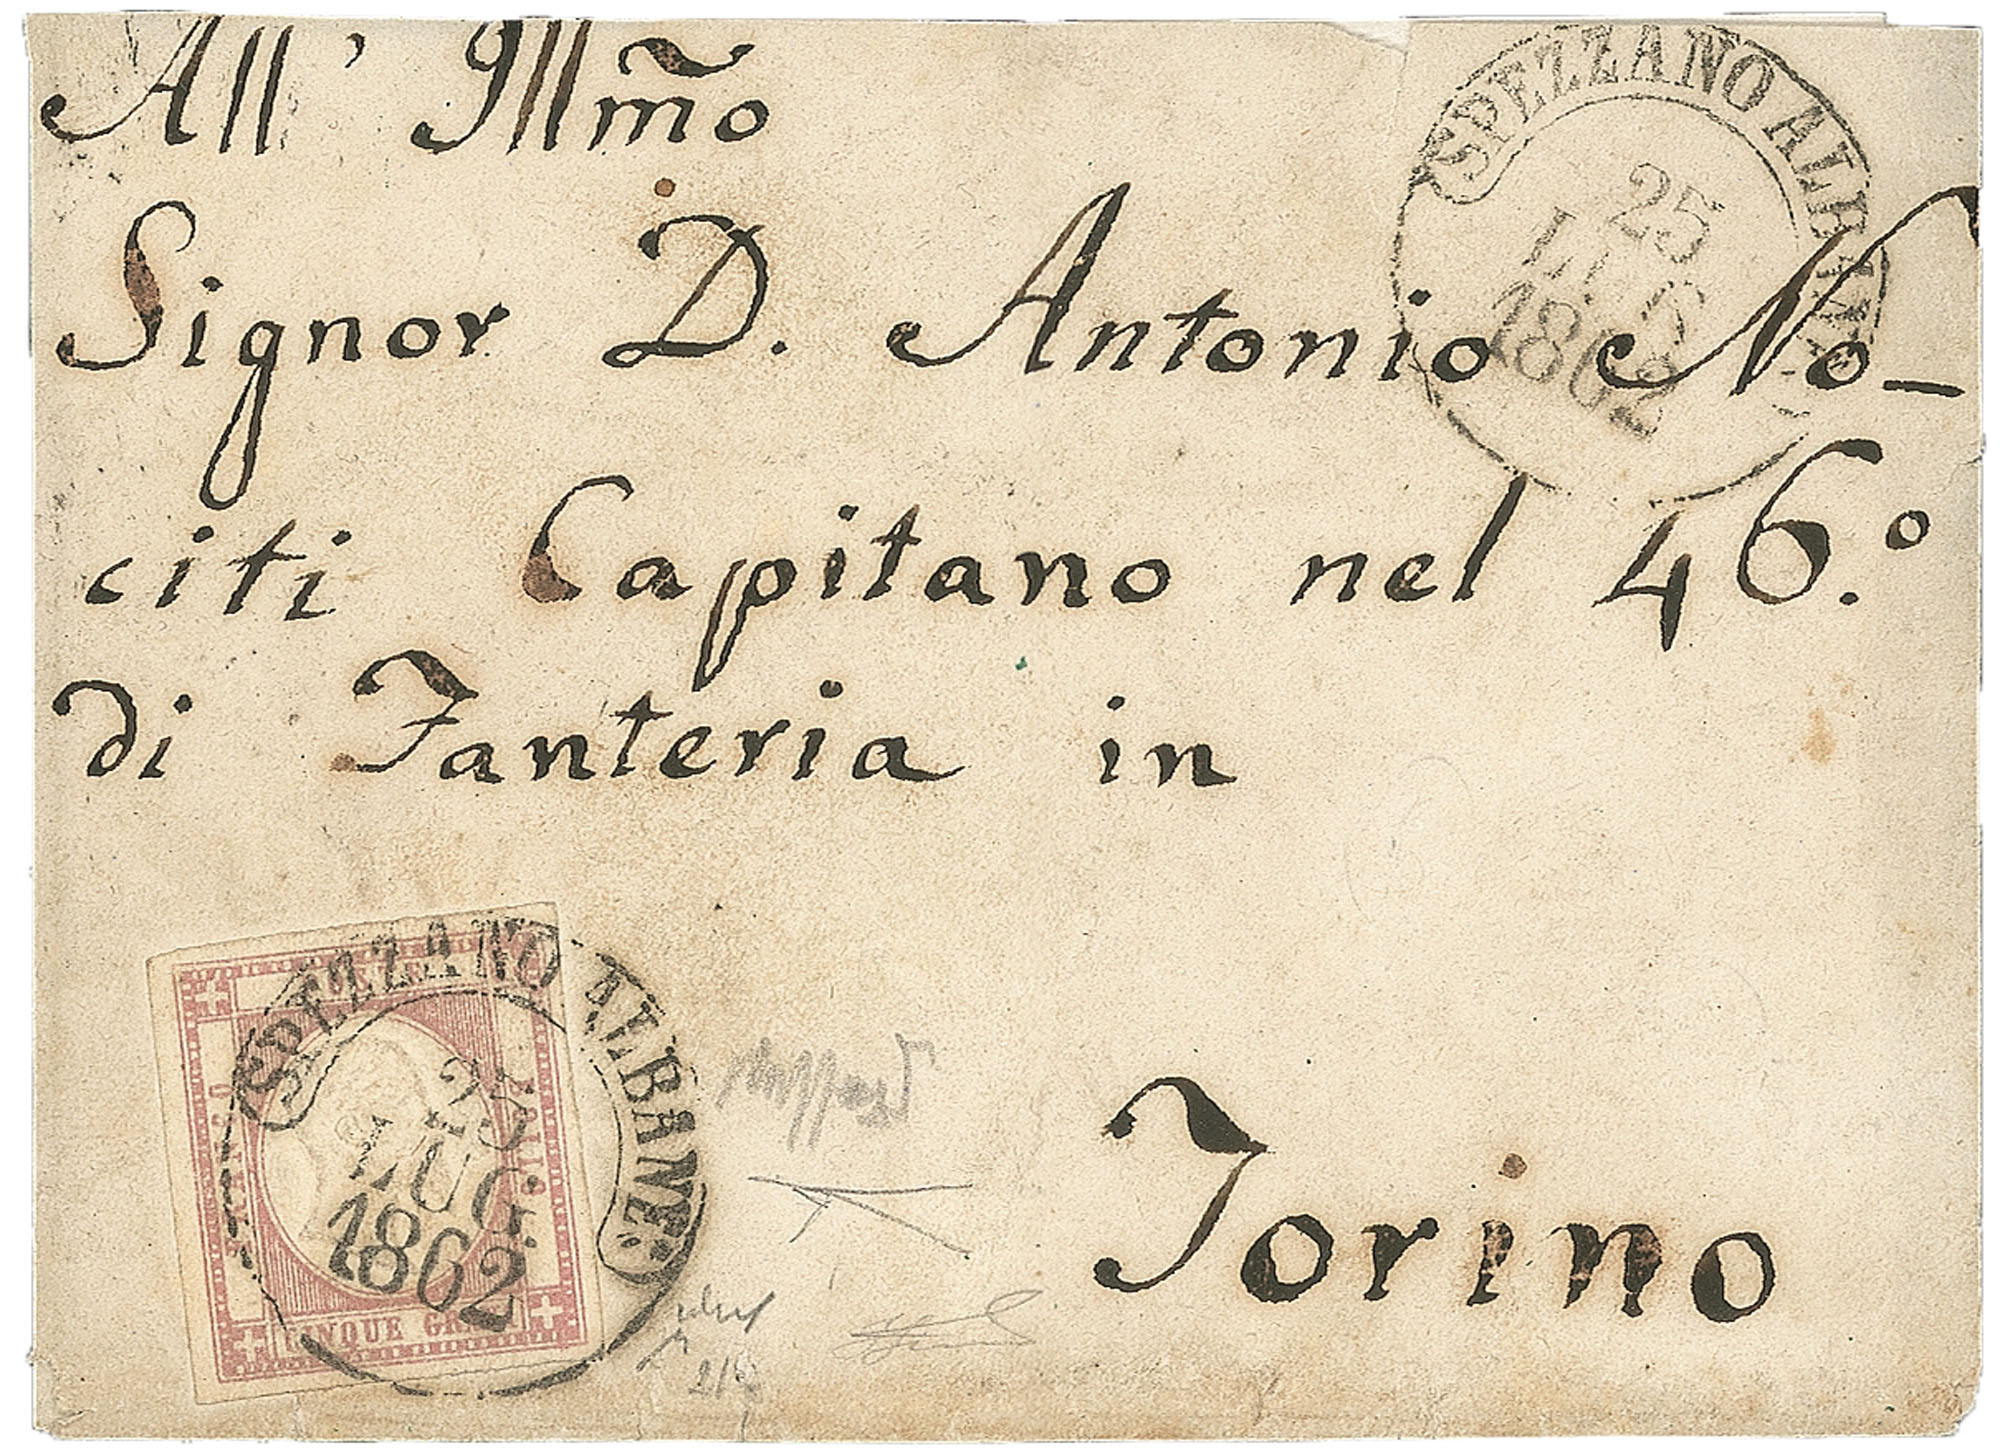 All' Illm̃o
Signor D. Antonio No-
citi Capitano nel 46.º
di Fanteria in
Torino
SPEZZANO ALBANE
25
LUG
1862
SPEZZANO ALBANESE
25
LUG.
1862
FRANCO
BOLLO
CINQUE GRANA